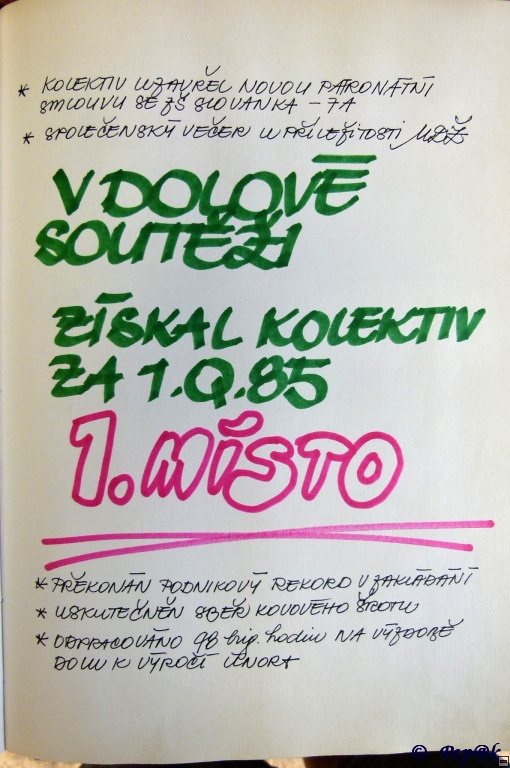 * KOLEKTIV UZAVŘEL NOVOU PATRONÁTNÍ
SMLOUVU SE ZŠ SLOVANKA - 7A
* SPOLEČENSKÝ VEČER U PŘÍLEŽITOSTI MDŽ
V DOLOVÉ
SOUTĚŽI
ZÍSKAL KOLEKTIV
ZA 1.Q.85
1. MÍSTO
* PŘEKONÁN PODNIKOVÝ REKORD V ZAKLÁDÁNÍ
* USKUTEČNĚN SBĚR KOVOVÉHO ŠROTU
* ODPRACOVÁNO 98 brig. hodin NA VÝZDOBĚ
DOLU K VÝROČÍ ÚNORA
© Pep@k